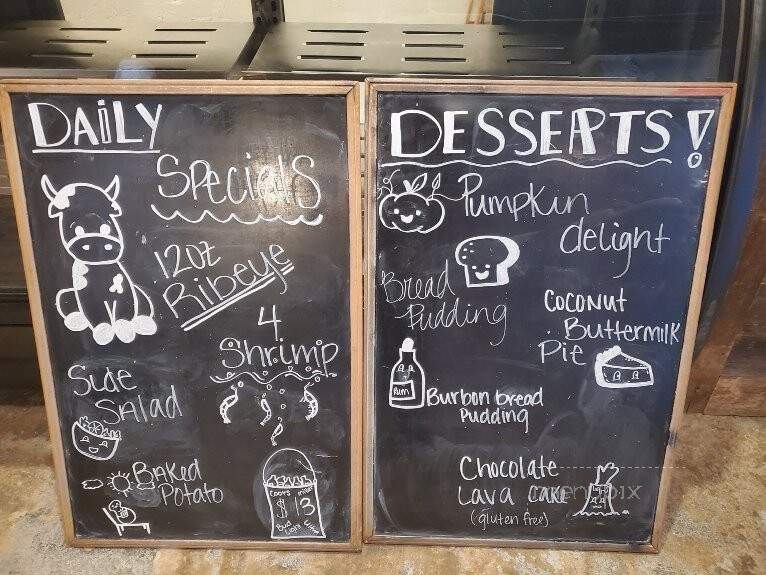 DAiLY
SPeciaLS
12oz
Ribeye
4
Shrimp
Side
SALAD
BAKED
Potato
$13
Bud
DESSERTS!
Pumpkin
delight
Bread
Pudding
Coconut
Buttermilk
Pie
Rum
Burbon bread
Pudding
Chocolate
Lava CAKE
(gluten free)